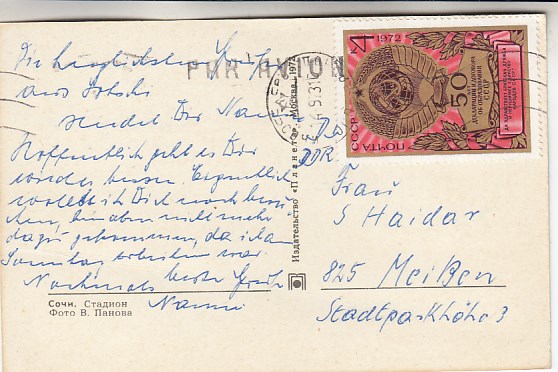 Die herzlichsten Grüße
aus Sotschi
sendet Dir Nanni
Hoffentlich geht es Dir
wieder besser. Eigentlich
wollte ich Dich noch besu-
chen, bin aber nicht mehr
dazu gekommen, da ich am
Sonntag
Nochmals beste Grüße
Nanni
Сочи. Стадион
Фото В. Панова
Издательство «Планета». Москва. 1972
PAR AVION
4 1972
50
ПОЧТА СССР
DDR
Frau
S Haidar
825 Meißen
Stadtparkhöhe 3